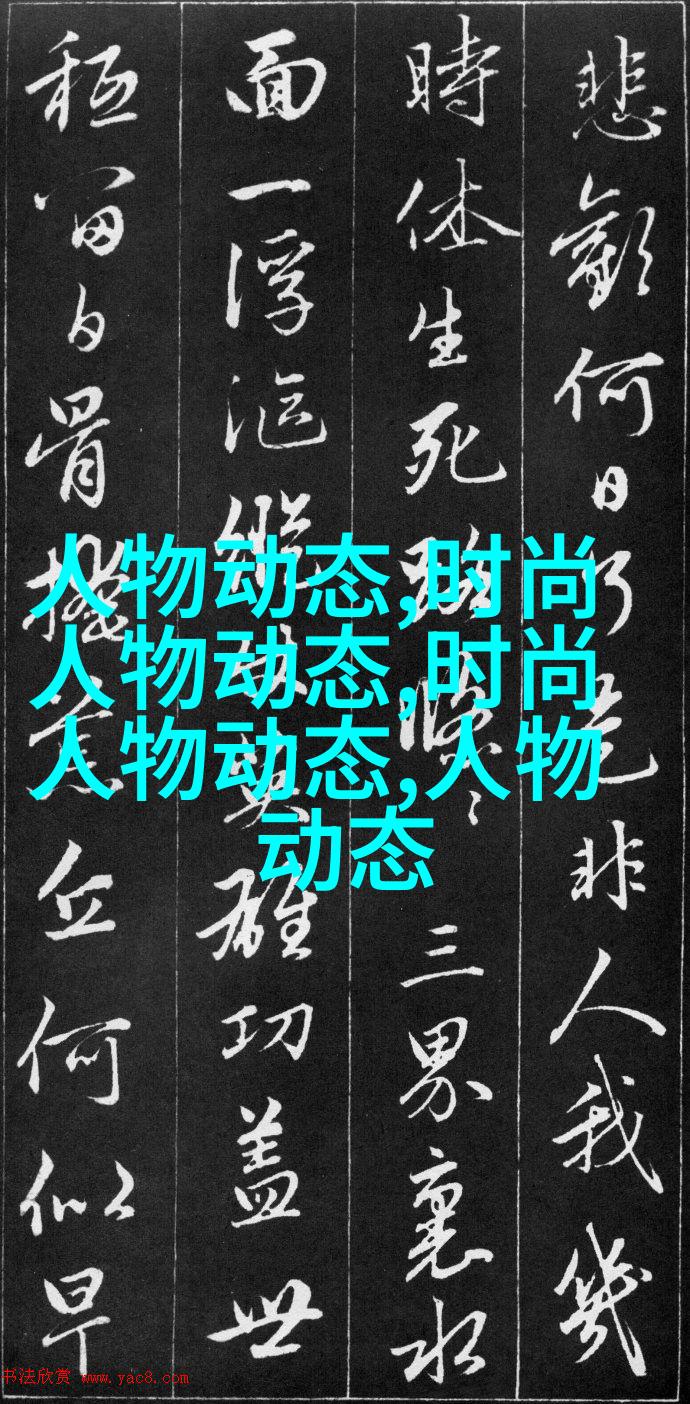 悲歡何日了是非人我幾
時休生死路慢慢三界裏水
面一浮漚縱英雄功盖世
秪留白骨掩荒丘何似早
人物动态,时尚
人物动态,时尚
人物动态,人物
动态
书法欣赏 www.yac8.com